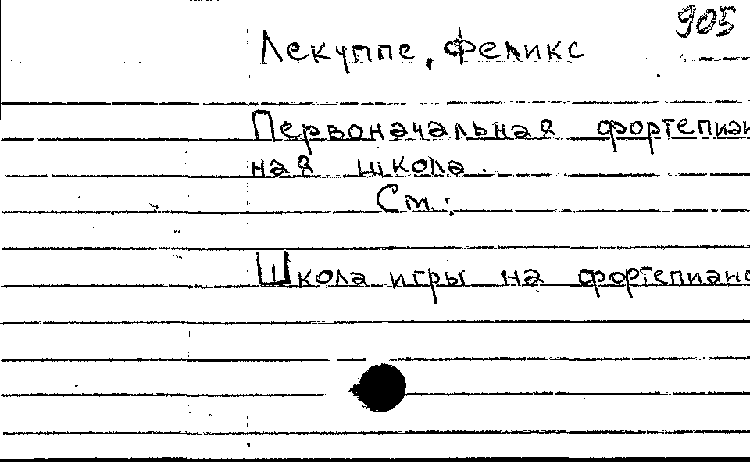 905
Лекуппе, Феликс
Первоначальная фортепиан
ная школа.
См.:
Школа игры на фортепиано